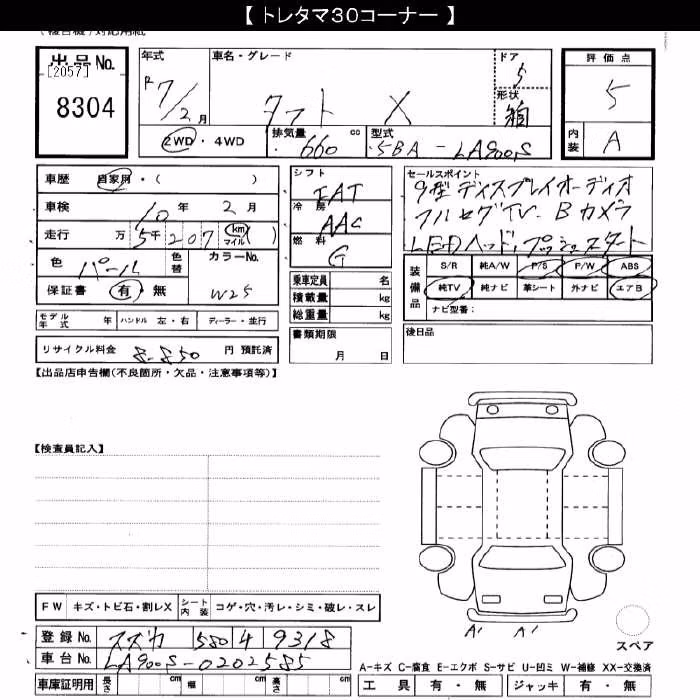 【 トレタマ30コーナー 】
(複合機)対応用紙
出品No.
[2057]
8304
年式 車名・グレード ドア
R7/2月 タフト X 5
形状
箱
2WD・4WD 排気量 660 cc 型式 5BA-LA900S
評価点
5
内装 A
車歴 自家用・( )
車検 10年 2月
走行 万 5千207 (km マイル)
色 パール 色替 カラーNo. W25
保証書 有・無
モデル年式 年 ハンドル 左・右 ディーラー・並行
リサイクル料金 8,850 円 預託済
シフト FAT
冷房 AAC
燃料 G
乗車定員 名
積載量 kg
総重量 kg
書類期限
月 日
セールスポイント
9型ディスプレイオーディオ
フルセグTV. Bカメラ
LEDヘッド, プッシュスタート
装備品 S/R 純A/W P/S P/W ABS
純TV 純ナビ 革シート 外ナビ エアB
ナビ型番:
後日品
【出品店申告欄(不良箇所・欠品・注意事項等)】
【検査員記入】
FW キズ・トビ石・割レX シート内装 コゲ・穴・汚レ・シミ・破レ・スレ
登録No. スズカ 580 4 9318
車台No. LA900S-0202585
車庫証明用 長さ cm 幅 cm 高さ cm
A' A'
スペア
A-キズ C-腐食 E-エクボ S-サビ U-凹ミ W-補修 XX-交換済
工具 有・無 ジャッキ 有・無